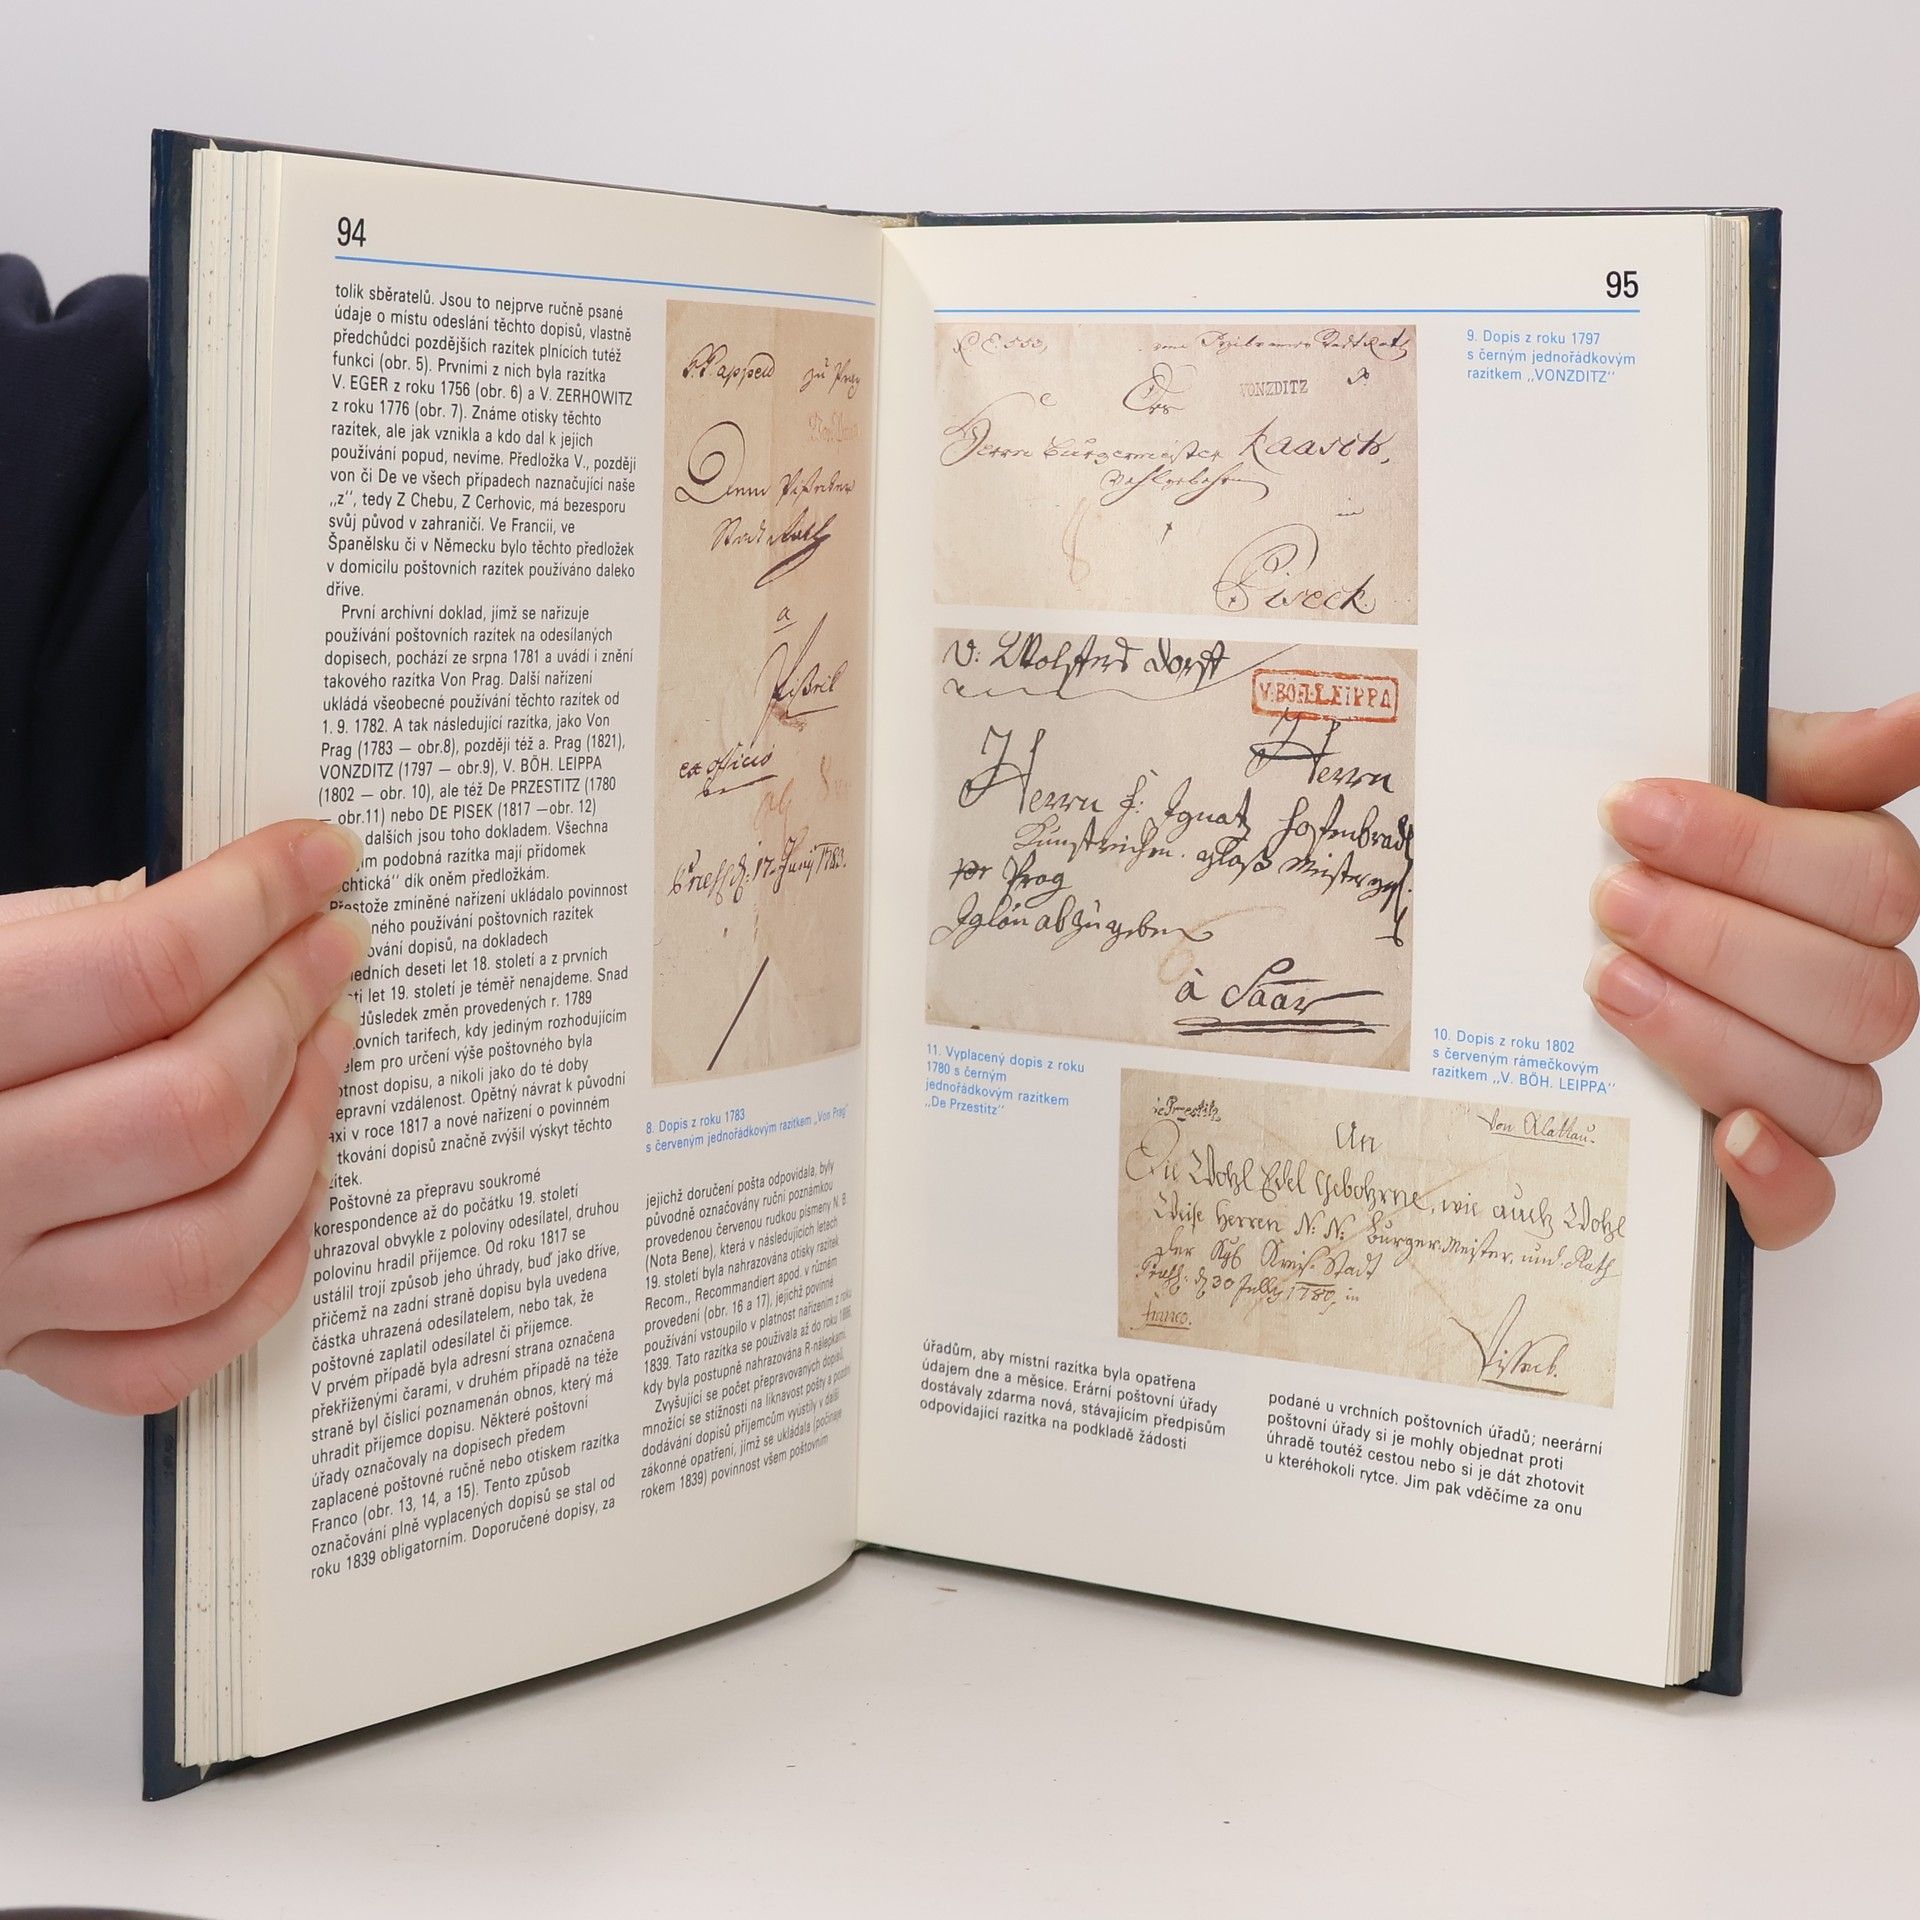 94
tolik sběratelů. Jsou to nejprve ručně psané
údaje o místu odeslání těchto dopisů, vlastně
předchůdci pozdějších razítek plnících tutéž
funkci (obr. 5). Prvními z nich byla razítka
V. EGER z roku 1756 (obr. 6) a V. ZERHOWITZ
z roku 1776 (obr. 7). Známe otisky těchto
razítek, ale jak vznikla a kdo dal k jejich
používání popud, nevíme. Předložka V., později
von či De ve všech případech naznačující naše
„z“, tedy Z Chebu, Z Cerhovic, má bezesporu
svůj původ v zahraničí. Ve Francii, ve
Španělsku či v Německu bylo těchto předložek
v domicilu poštovních razítek používáno daleko
dříve.
První archívní doklad, jímž se nařizuje
používání poštovních razítek na odesílaných
dopisech, pochází ze srpna 1781 a uvádí i znění
takového razítka Von Prag. Další nařízení
ukládá všeobecné používání těchto razítek od
1. 9. 1782. A tak následující razítka, jako Von
Prag (1783 — obr.8), později též a. Prag (1821),
VONZDITZ (1797 — obr.9), V. BÖH. LEIPPA
(1802 — obr. 10), ale též De PRZESTITZ (1780
— obr.11) nebo DE PISEK (1817 —obr. 12)
dalších jsou toho dokladem. Všechna
im podobná razítka mají přídomek
chtická“ dík oněm předložkám.
Přestože zmíněné nařízení ukládalo povinnost
ného používání poštovních razítek
ování dopisů, na dokladech
ledních deseti let 18. století a z prvních
ti let 19. století je téměř nenajdeme. Snad
důsledek změn provedených r. 1789
ovních tarifech, kdy jediným rozhodujícím
elem pro určení výše poštovného byla
otnost dopisu, a nikoli jako do té doby
epravní vzdálenost. Opětný návrat k původní
axi v roce 1817 a nové nařízení o povinném
tkování dopisů značně zvýšil výskyt těchto
zítek.
Poštovné za přepravu soukromé
korespondence až do počátku 19. století
uhrazoval obvykle z poloviny odesílatel, druhou
polovinu hradil příjemce. Od roku 1817 se
ustálil trojí způsob jeho úhrady, buď jako dříve,
přičemž na zadní straně dopisu byla uvedena
částka uhrazená odesílatelem, nebo tak, že
poštovné zaplatil odesílatel či příjemce.
V prvém případě byla adresní strana označena
překříženými čarami, v druhém případě na téže
straně byl číslicí poznamenán obnos, který má
uhradit příjemce dopisu. Některé poštovní
úřady označovaly na dopisech předem
zaplacené poštovné ručně nebo otiskem razítka
Franco (obr. 13, 14, a 15). Tento způsob
označování plně vyplacených dopisů se stal od
roku 1839 obligatorním. Doporučené dopisy, za
zu Prag
Stadt Rath
a
ex officio
8. Dopis z roku 1783
s červeným jednořádkovým razítkem „Von Prag“
jejichž doručení pošta odpovídala, byly
původně označovány ruční poznámkou
provedenou červenou rudkou písmeny N. B.
(Nota Bene), která v následujících letech
19. století byla nahrazována otisky razítek
Recom., Recommandiert apod. v různém
provedení (obr. 16 a 17), jejichž povinné
používání vstoupilo v platnost nařízením z roku
1839. Tato razítka se používala až do roku 1886,
kdy byla postupně nahrazována R-nálepkami.
Zvyšující se počet přepravovaných dopisů,
množící se stížnosti na liknavost pošty a pozdní
dodávání dopisů příjemcům vyústily v další
zákonné opatření, jímž se ukládala (počínaje
rokem 1839) povinnost všem poštovním
95
VONZDITZ
Herrn Burgermeister Kaasch,
in
Piseck
9. Dopis z roku 1797
s černým jednořádkovým
razítkem „VONZDITZ“
V. BÖH. LEIPPA
Herrn
Herrn F: Ignatz
pr Prag
Iglau abzugeben
à Saar
10. Dopis z roku 1802
s červeným rámečkovým
razítkem „V. BÖH. LEIPPA“
11. Vyplacený dopis z roku
1780 s černým
jednořádkovým razítkem
„De Przestitz“
De Przestitz
Von Klattau.
An
Die Wohl Edel Gebohrne, wie auch Wohl
Weise Herren N: N: Burger Meister, und Rath
der Kgl Kreis Stadt
franco.
úřadům, aby místní razítka byla opatřena
údajem dne a měsíce. Erární poštovní úřady
dostávaly zdarma nová, stávajícím předpisům
odpovídající razítka na podkladě žádosti
podané u vrchních poštovních úřadů; neerární
poštovní úřady si je mohly objednat proti
úhradě toutéž cestou nebo si je dát zhotovit
u kteréhokoli rytce. Jim pak vděčíme za onu